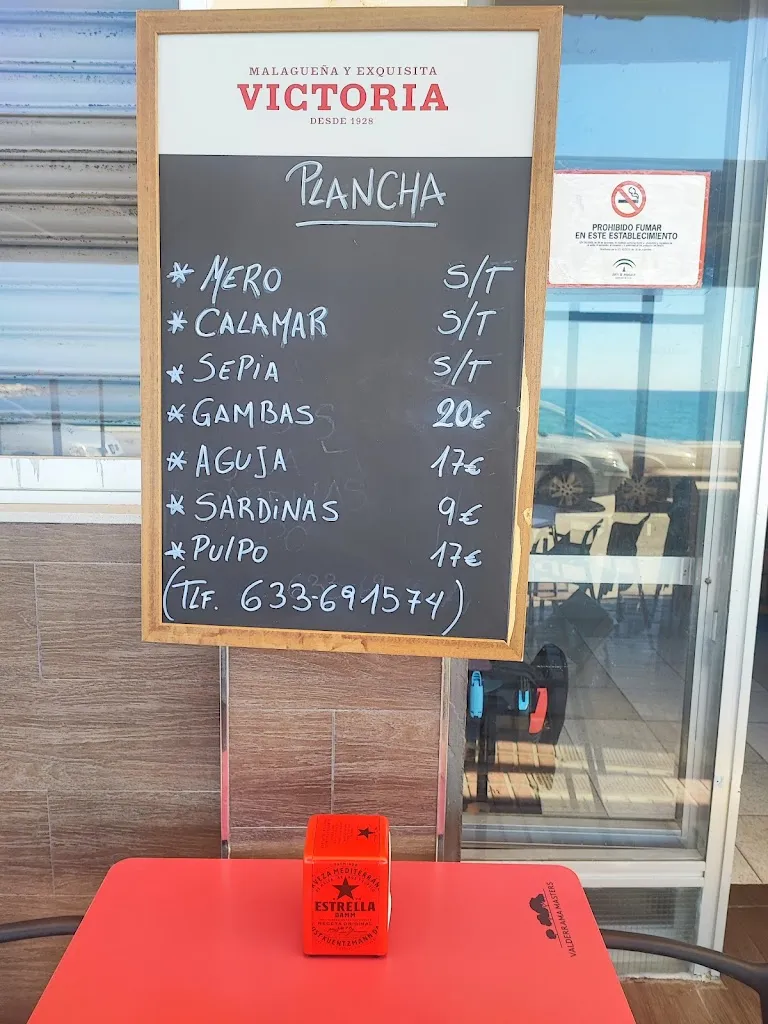 MALAGUEÑA Y EXQUISITA
VICTORIA
DESDE 1928
PLANCHA
* MERO S/T
* CALAMAR S/T
* SEPIA S/T
* GAMBAS 20€
* AGUJA 17€
* SARDINAS 9€
* PULPO 17€
(TLF. 633-691574)
PROHIBIDO FUMAR
EN ESTE ESTABLECIMIENTO
ESTRELLA
DAMM
VALDERRAMA MASTERS